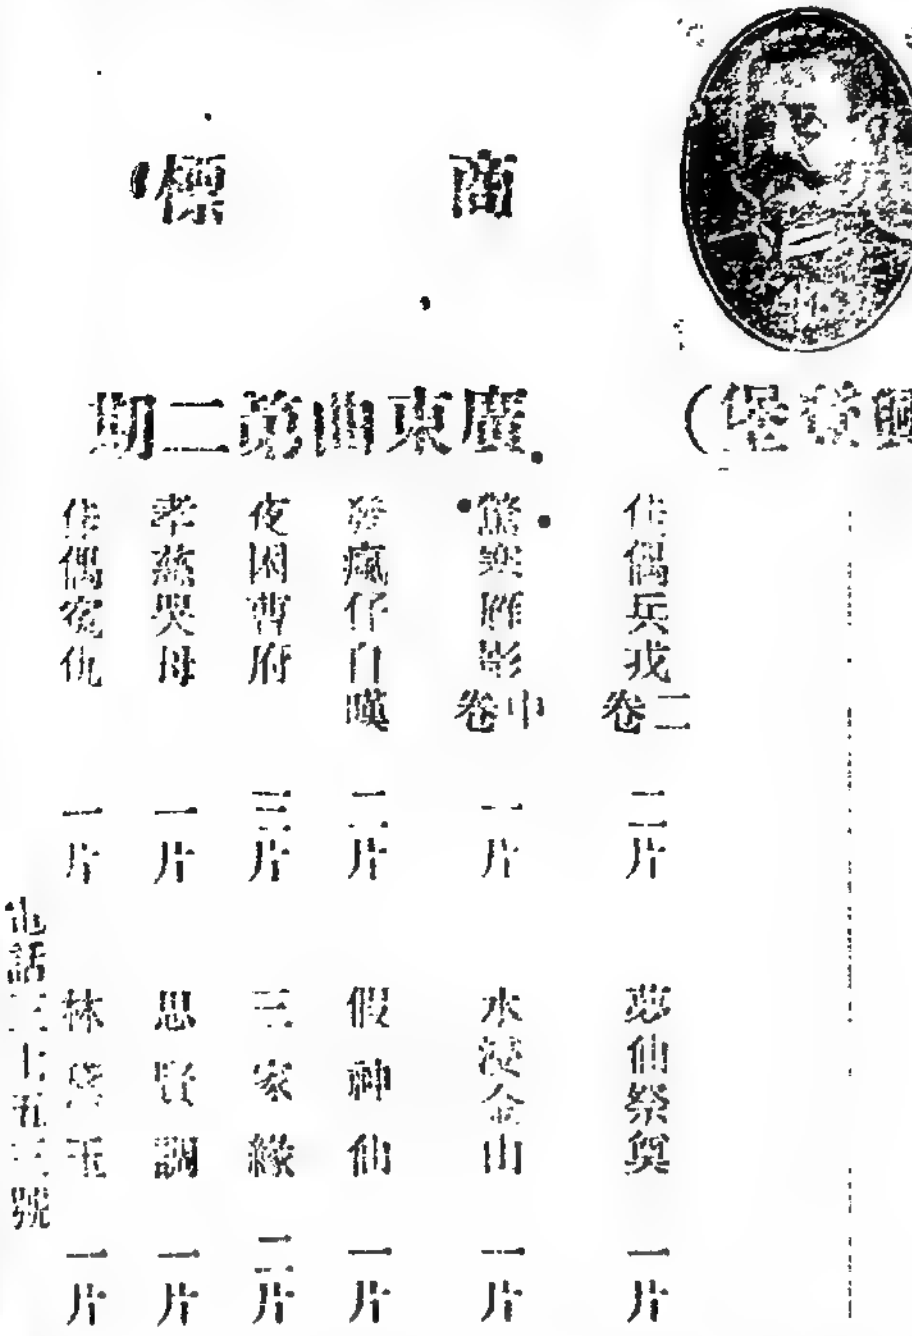 商標
堡
廣東曲第二期
佳偶兵戎 二卷 二片
驚 影 中卷 一片
發瘋仔自嘆 二片
夜困曹府 三片
孝慈哭母 一片
佳偶寃仇 一片
夢仙祭奠 一片
水浸金山 一片
假神仙 一片
三家緣 二片
思賢調 一片
林黛玉 一片
電話三七五三號